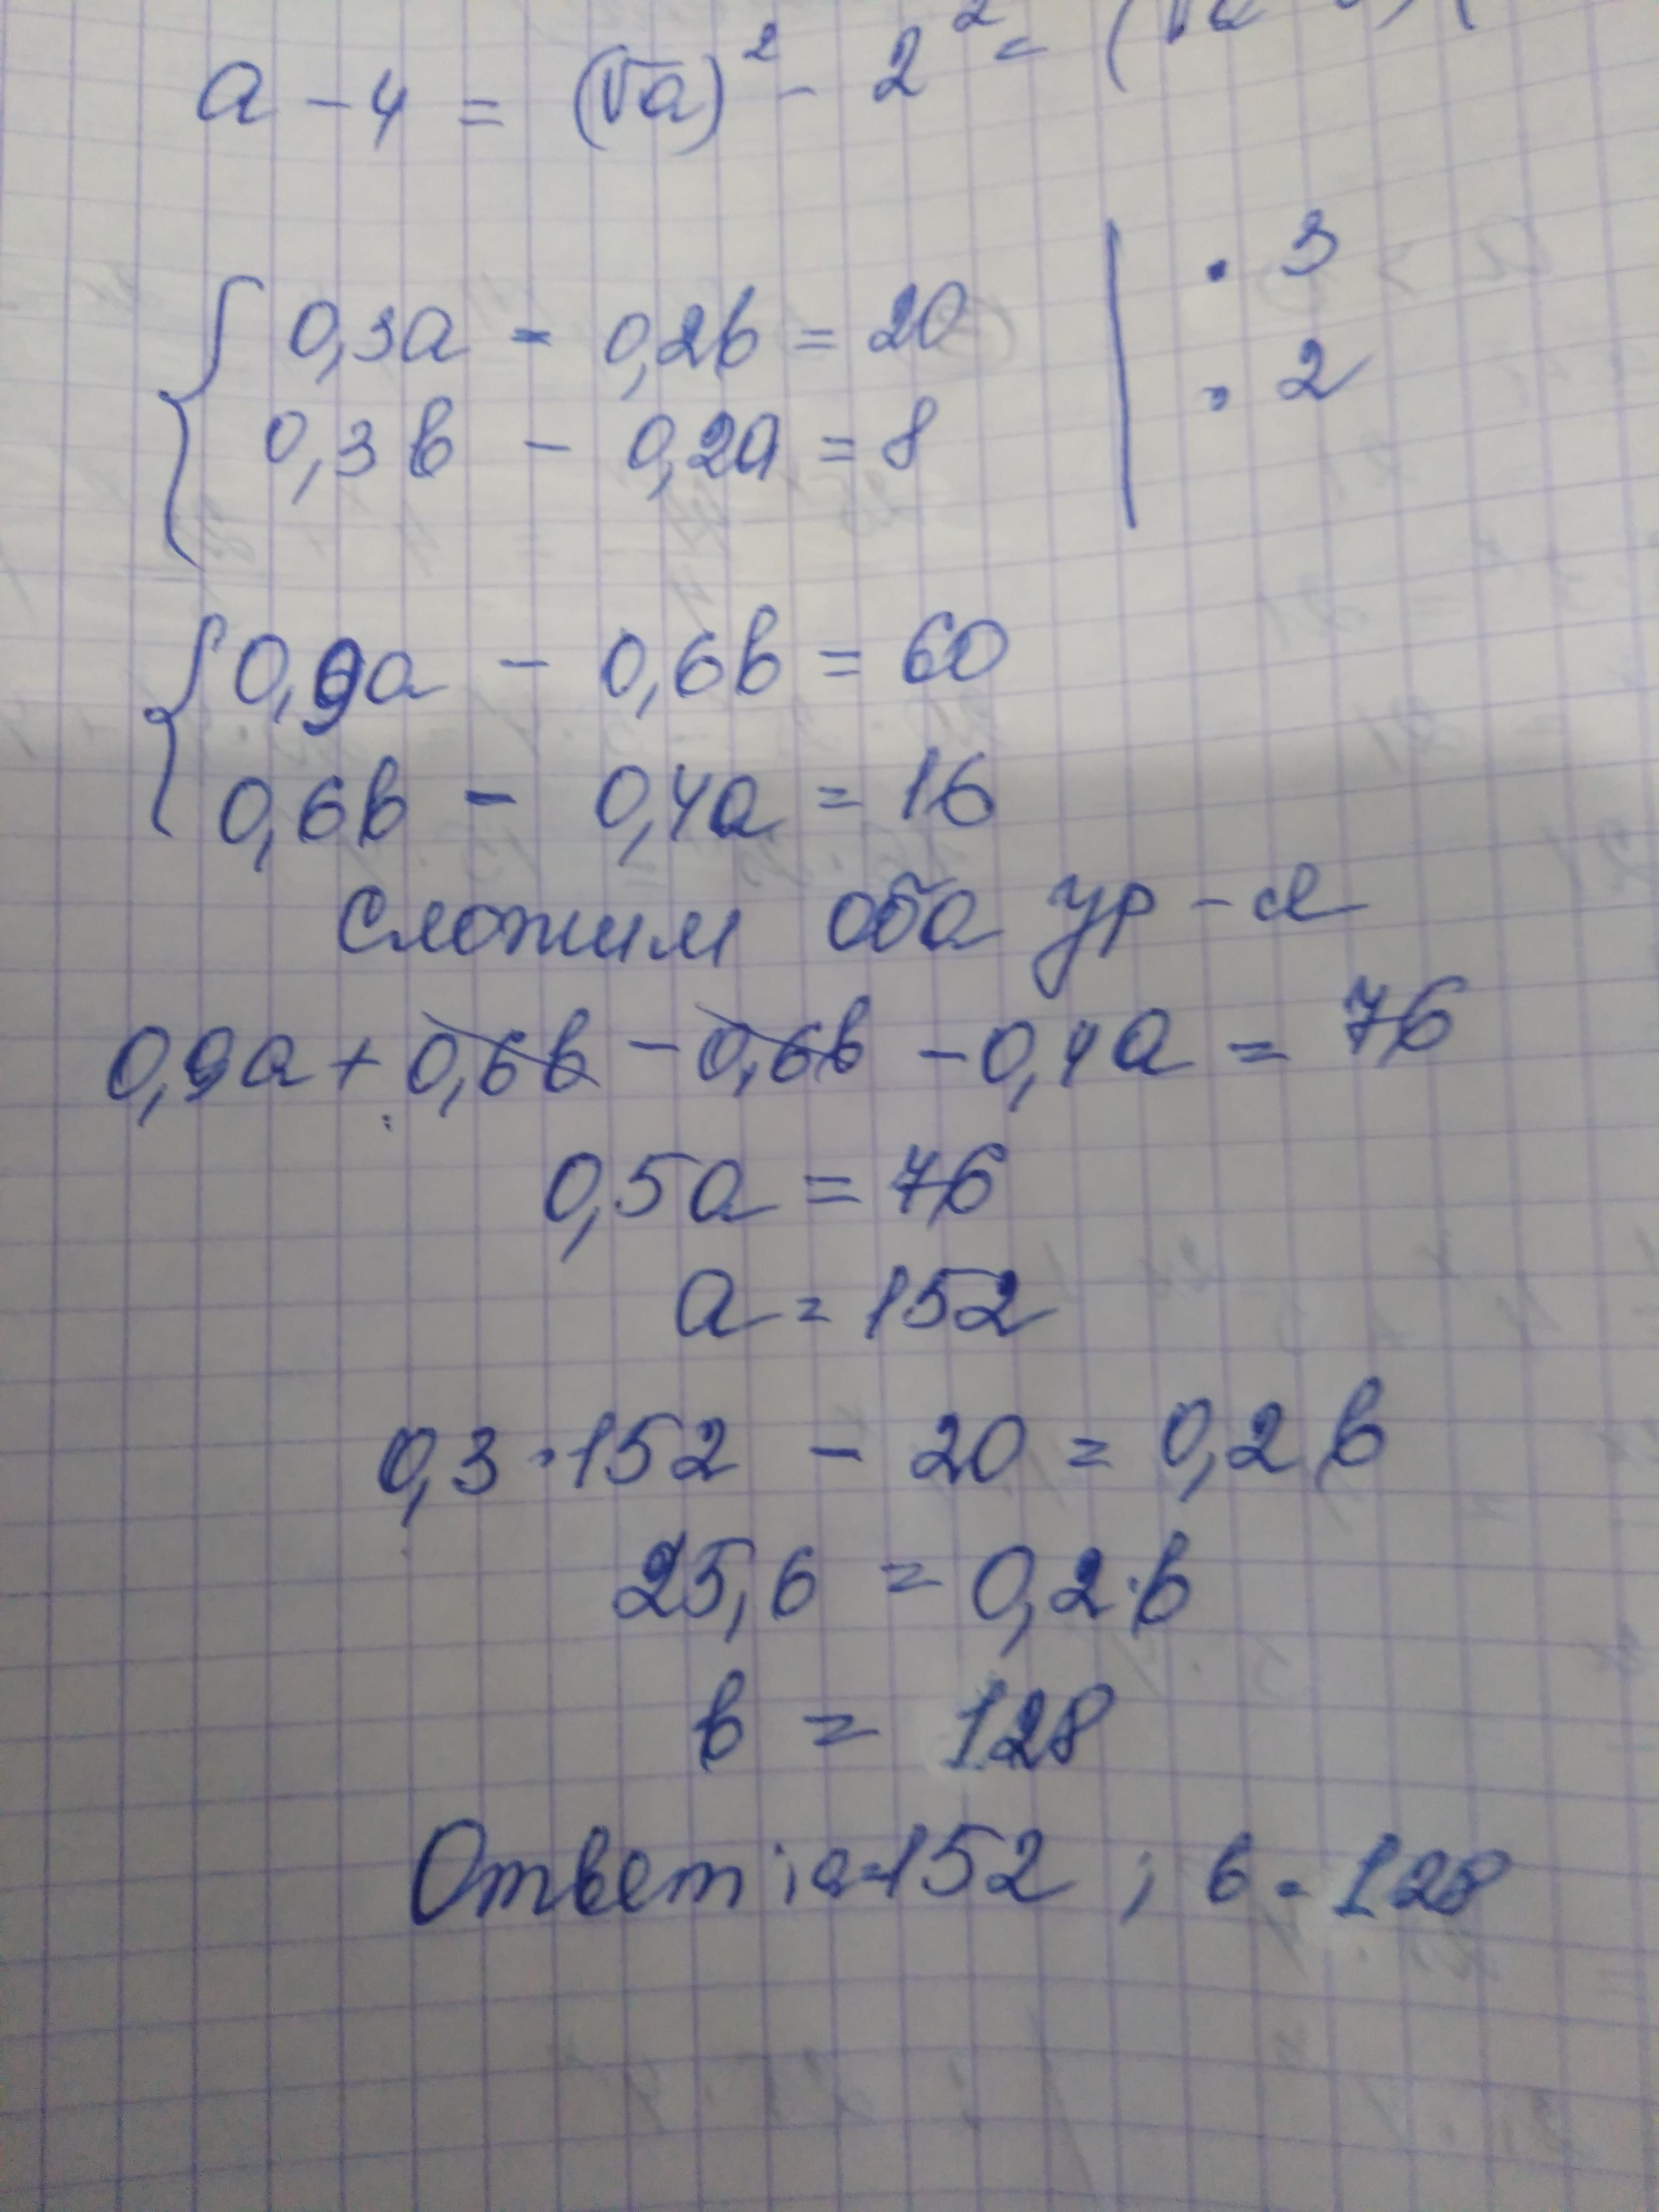 a - 4 = (√a)² - 2² = (√a
{ 0,3a - 0,2b = 20 | · 3
0,3b - 0,2a = 8 | · 2
{ 0,9a - 0,6b = 60
0,6b - 0,4a = 16
Сложим оба ур-я
0,9a + 0,6b - 0,6b - 0,4a = 76
0,5a = 76
a = 152
0,3 · 152 - 20 = 0,2b
25,6 = 0,2·b
b = 128
Ответ: a=152 ; b = 128